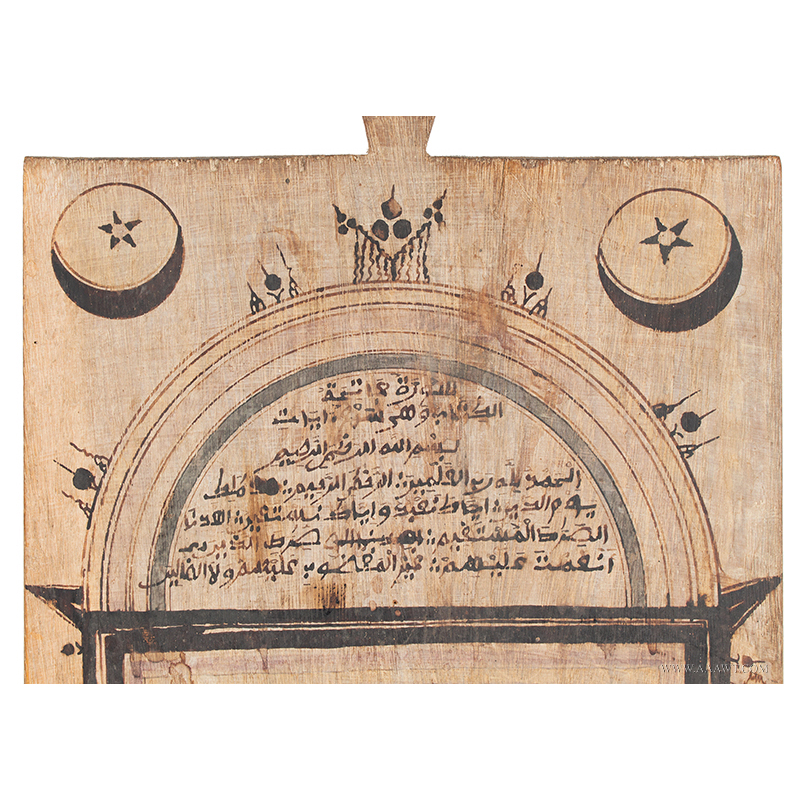 السورة فاتحة
الكتاب وهي سبع ايات
بسم الله الرحمن الرحيم
الحمد لله رب العلمين الرحمن الرحيم ملك
يوم الدين اياك نعبد واياك نستعين اهدنا
الصرط المستقيم صرط الذين
أنعمت عليهم غير المغضوب عليهم ولا الضالين
WWW.AAAWT.COM